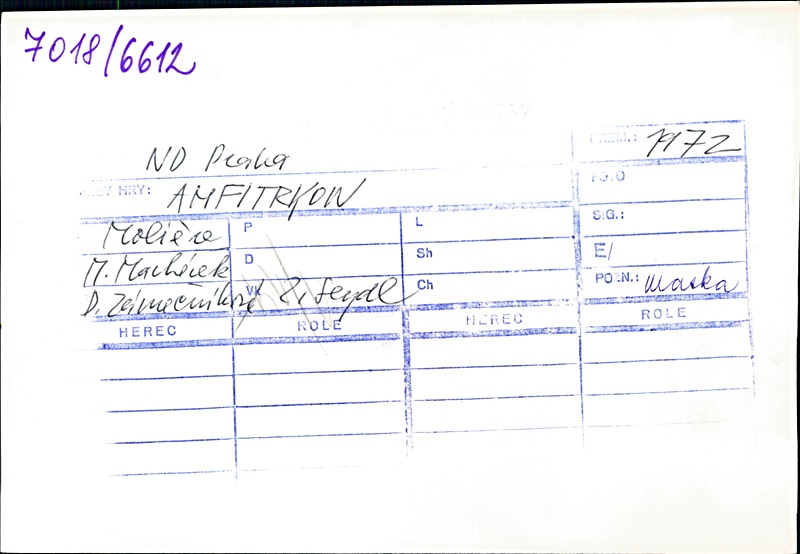 7018/6612
ND Praha
PREM.: 1972
HRY: AMFITRYON
FOTO
Molière P L SIG.:
M. Macháček D Sh E/
D. Zámečníková VK Z. Seydl Ch POZN.: maska
HEREC ROLE HEREC ROLE